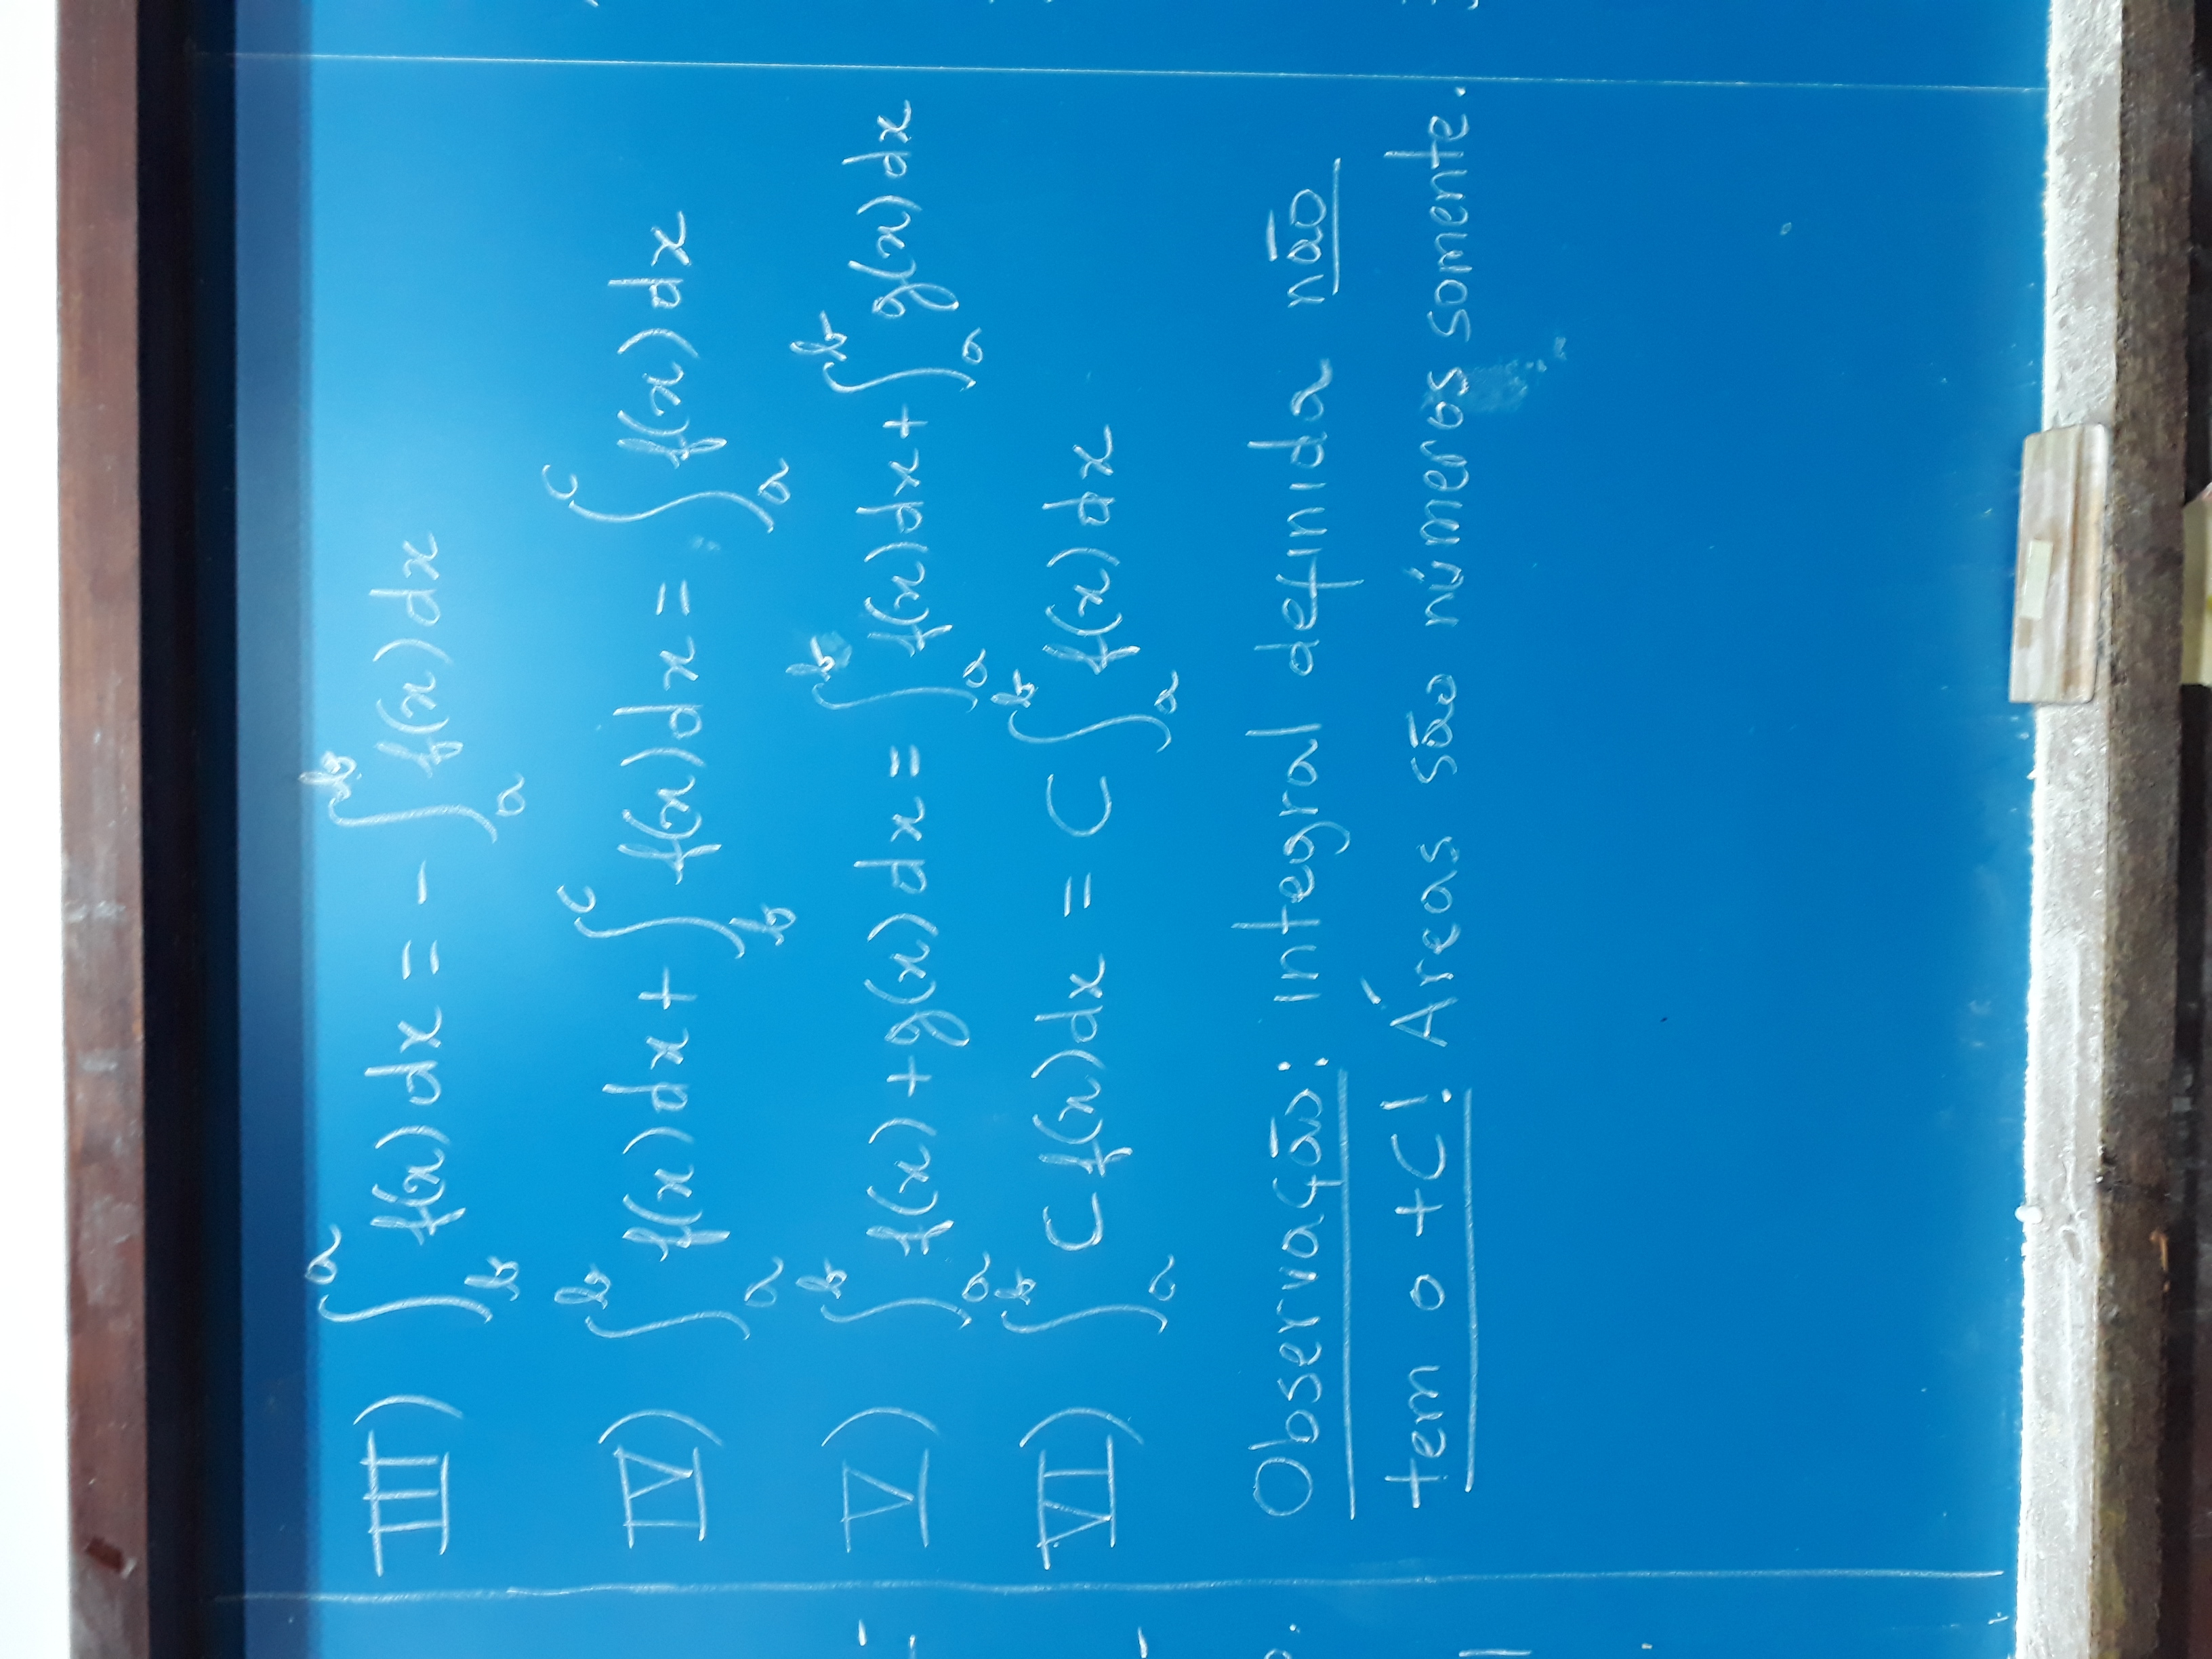 III) ∫_b^a f(x) dx = - ∫_a^b f(x) dx
IV) ∫_a^b f(x) dx + ∫_b^c f(x) dx = ∫_a^c f(x) dx
V) ∫_a^b f(x) + g(x) dx = ∫_a^b f(x) dx + ∫_a^b g(x) dx
VI) ∫_a^b C f(x) dx = C ∫_a^b f(x) dx
Observação: integral definida não
tem o +C! Áreas são números somente.